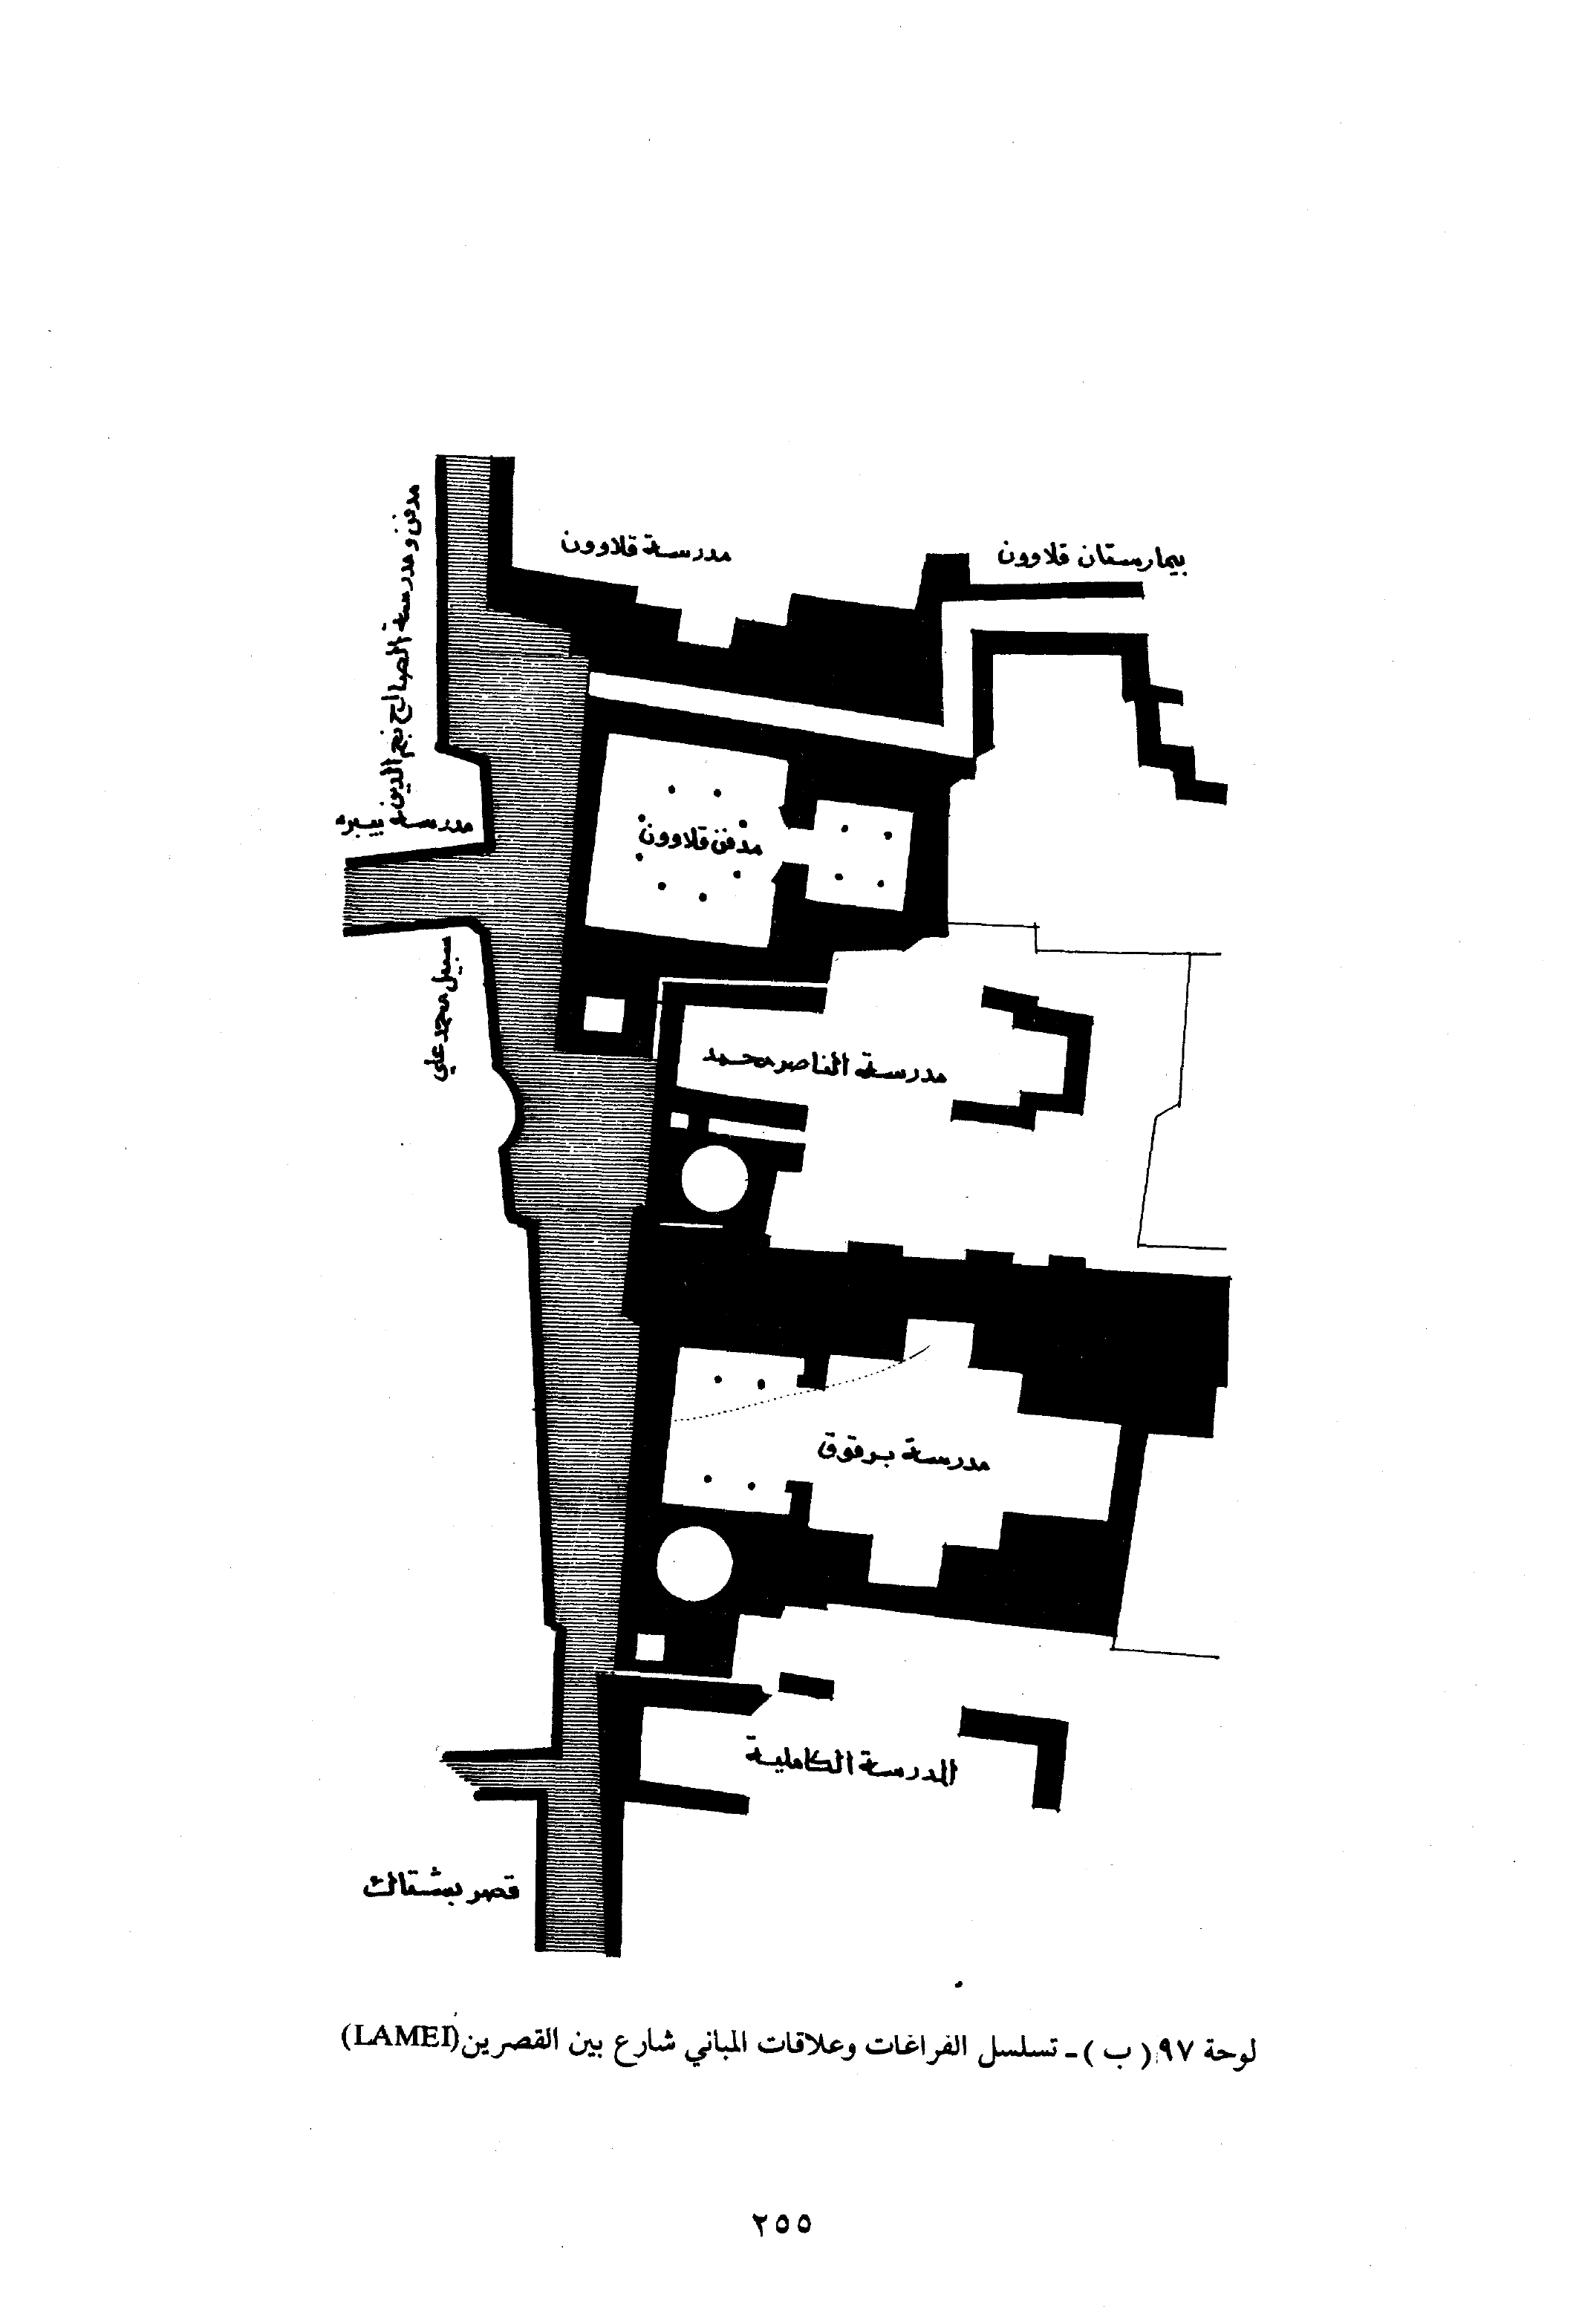 مدرسة قلاوون
بيمارستان قلاوون
مدفن ومدرسة الصالح نجم الدين
مدرسة بيبرس
مدفن قلاوون
سبيل محمد علي
مدرسة الناصر محمد
مدرسة برقوق
المدرسة الكاملية
قصر بشتاك
لوحة ٩٧ (ب) - تسلسل الفراغات وعلاقات المباني شارع بين القصرين (LAMEI)
٢٥٥